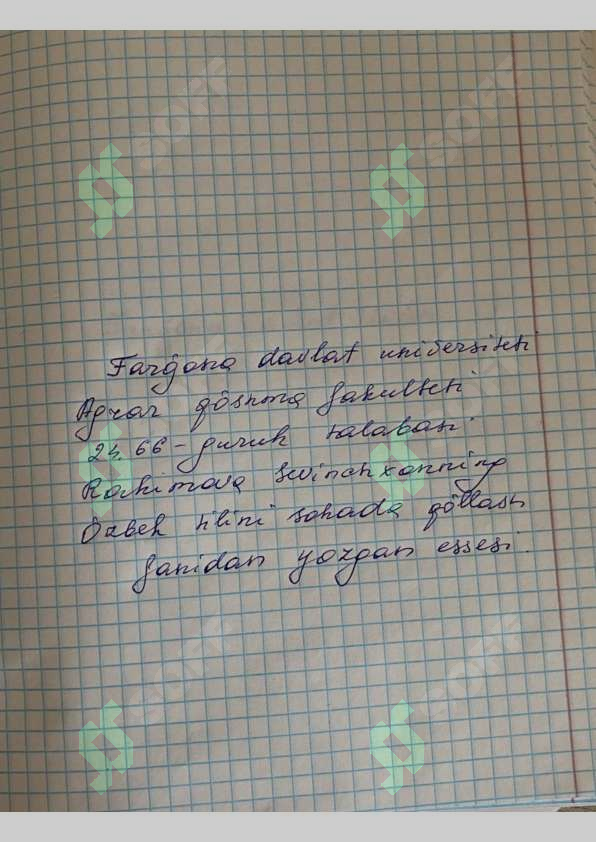 Farĝona davlat universiteti
Agrar qôshma fakulteti
24.66-guruh talabasi
Rashimova Sevinchxonning
Ôzbek tilini sohada qôllash
fanidan yozgan essesi.
SOFF
SOFF
SOFF
SOFF
SOFF
SOFF